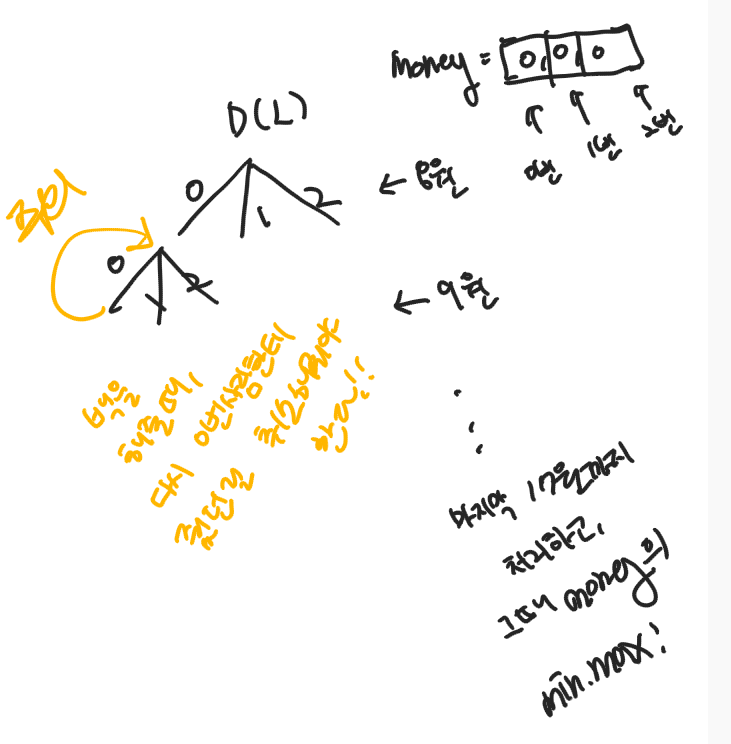 money = 0, 0, 0
0번 1번 2번
D(L)
0 1 2 ← 8원
주의
0 1 2 ← 9원
백을
해줄때,
다시 0번사람한테
줬던걸 취소해줘야
한다!!
마지막 17원까지
처리하고,
그때 money의
min.max!